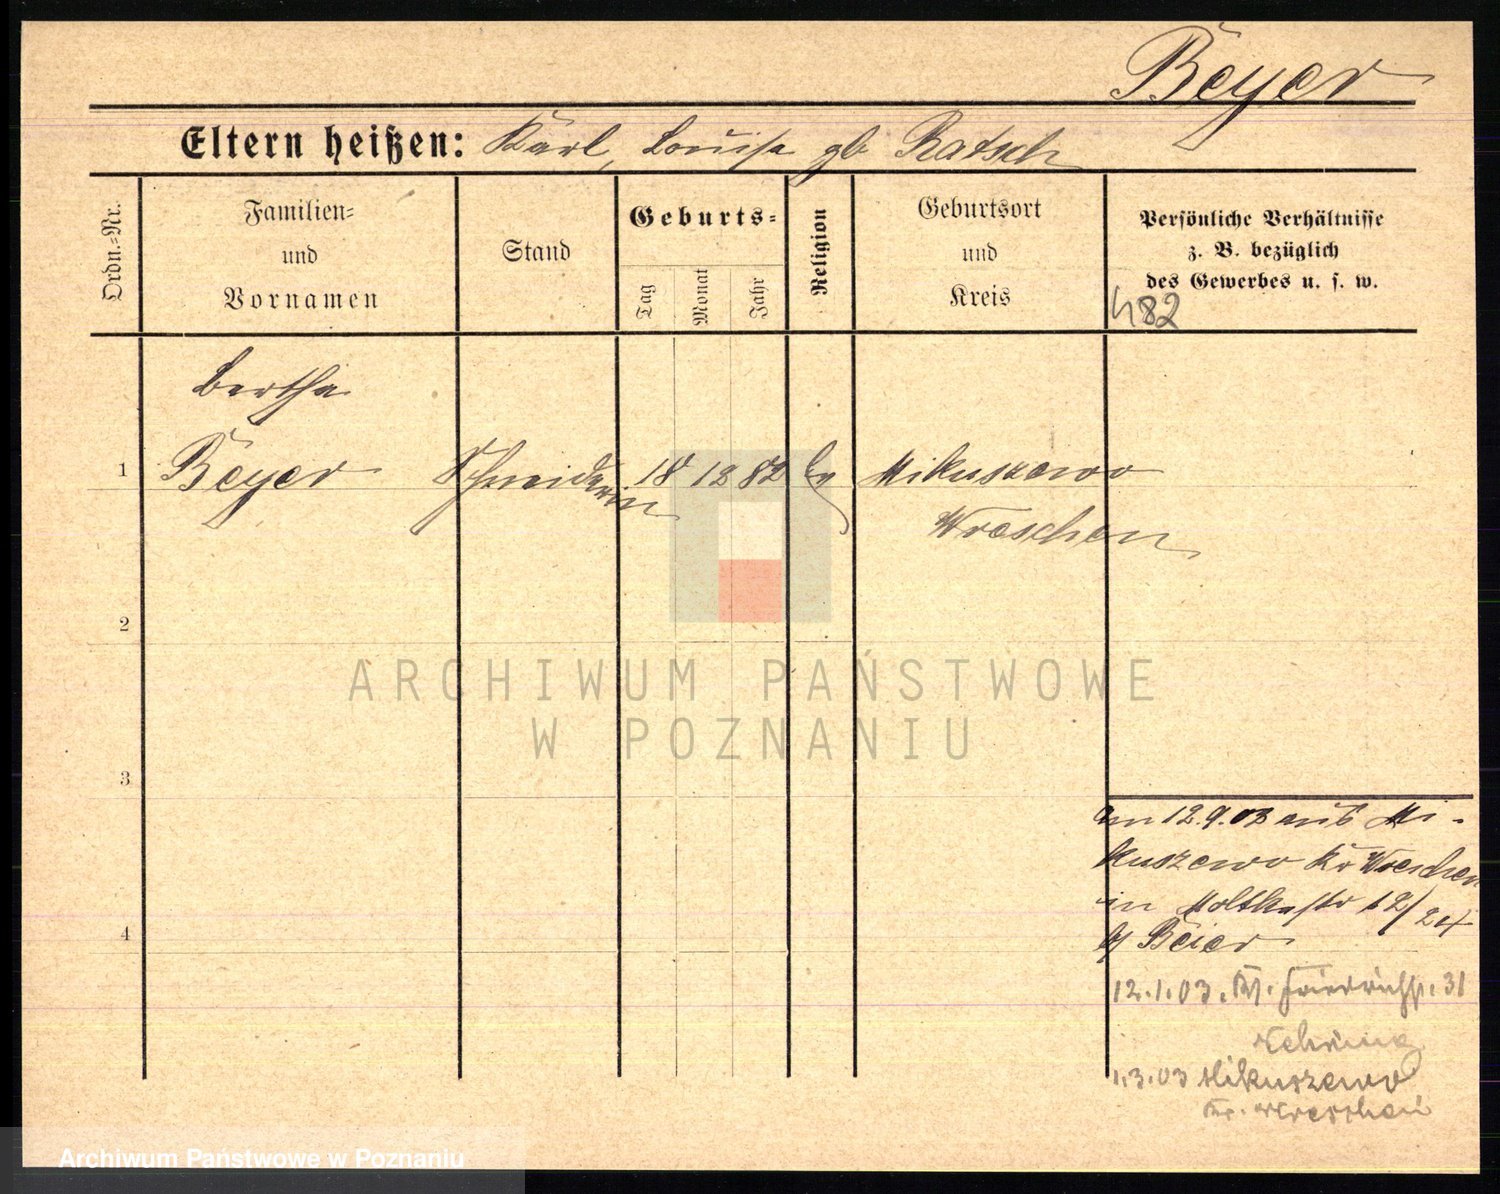 Beyer
Eltern heißen: Karl, Louise gb Ratsch
Ordn.=Nr.
Familien=
und
Vornamen
Stand
Geburts=
Tag
Monat
Jahr
Religion
Geburtsort
und
Kreis
Persönliche Verhältnisse
z. B. bezüglich
des Gewerbes u. s. w.
482
Bertha
1 Beyer Schneiderin 18 12 82 ev Mikuszewo
Wreschen
2
3
4
am 12.9.02 aus Mi-
kuszewo Kr Wreschen
in Moltkestr 12/
b/ Beier
12.1.03. Friedrichstr. 31
1.3.03 Mikuszewo
Kr. Wreschen
ARCHIWUM PAŃSTWOWE
W POZNANIU
Archiwum Państwowe w Poznaniu